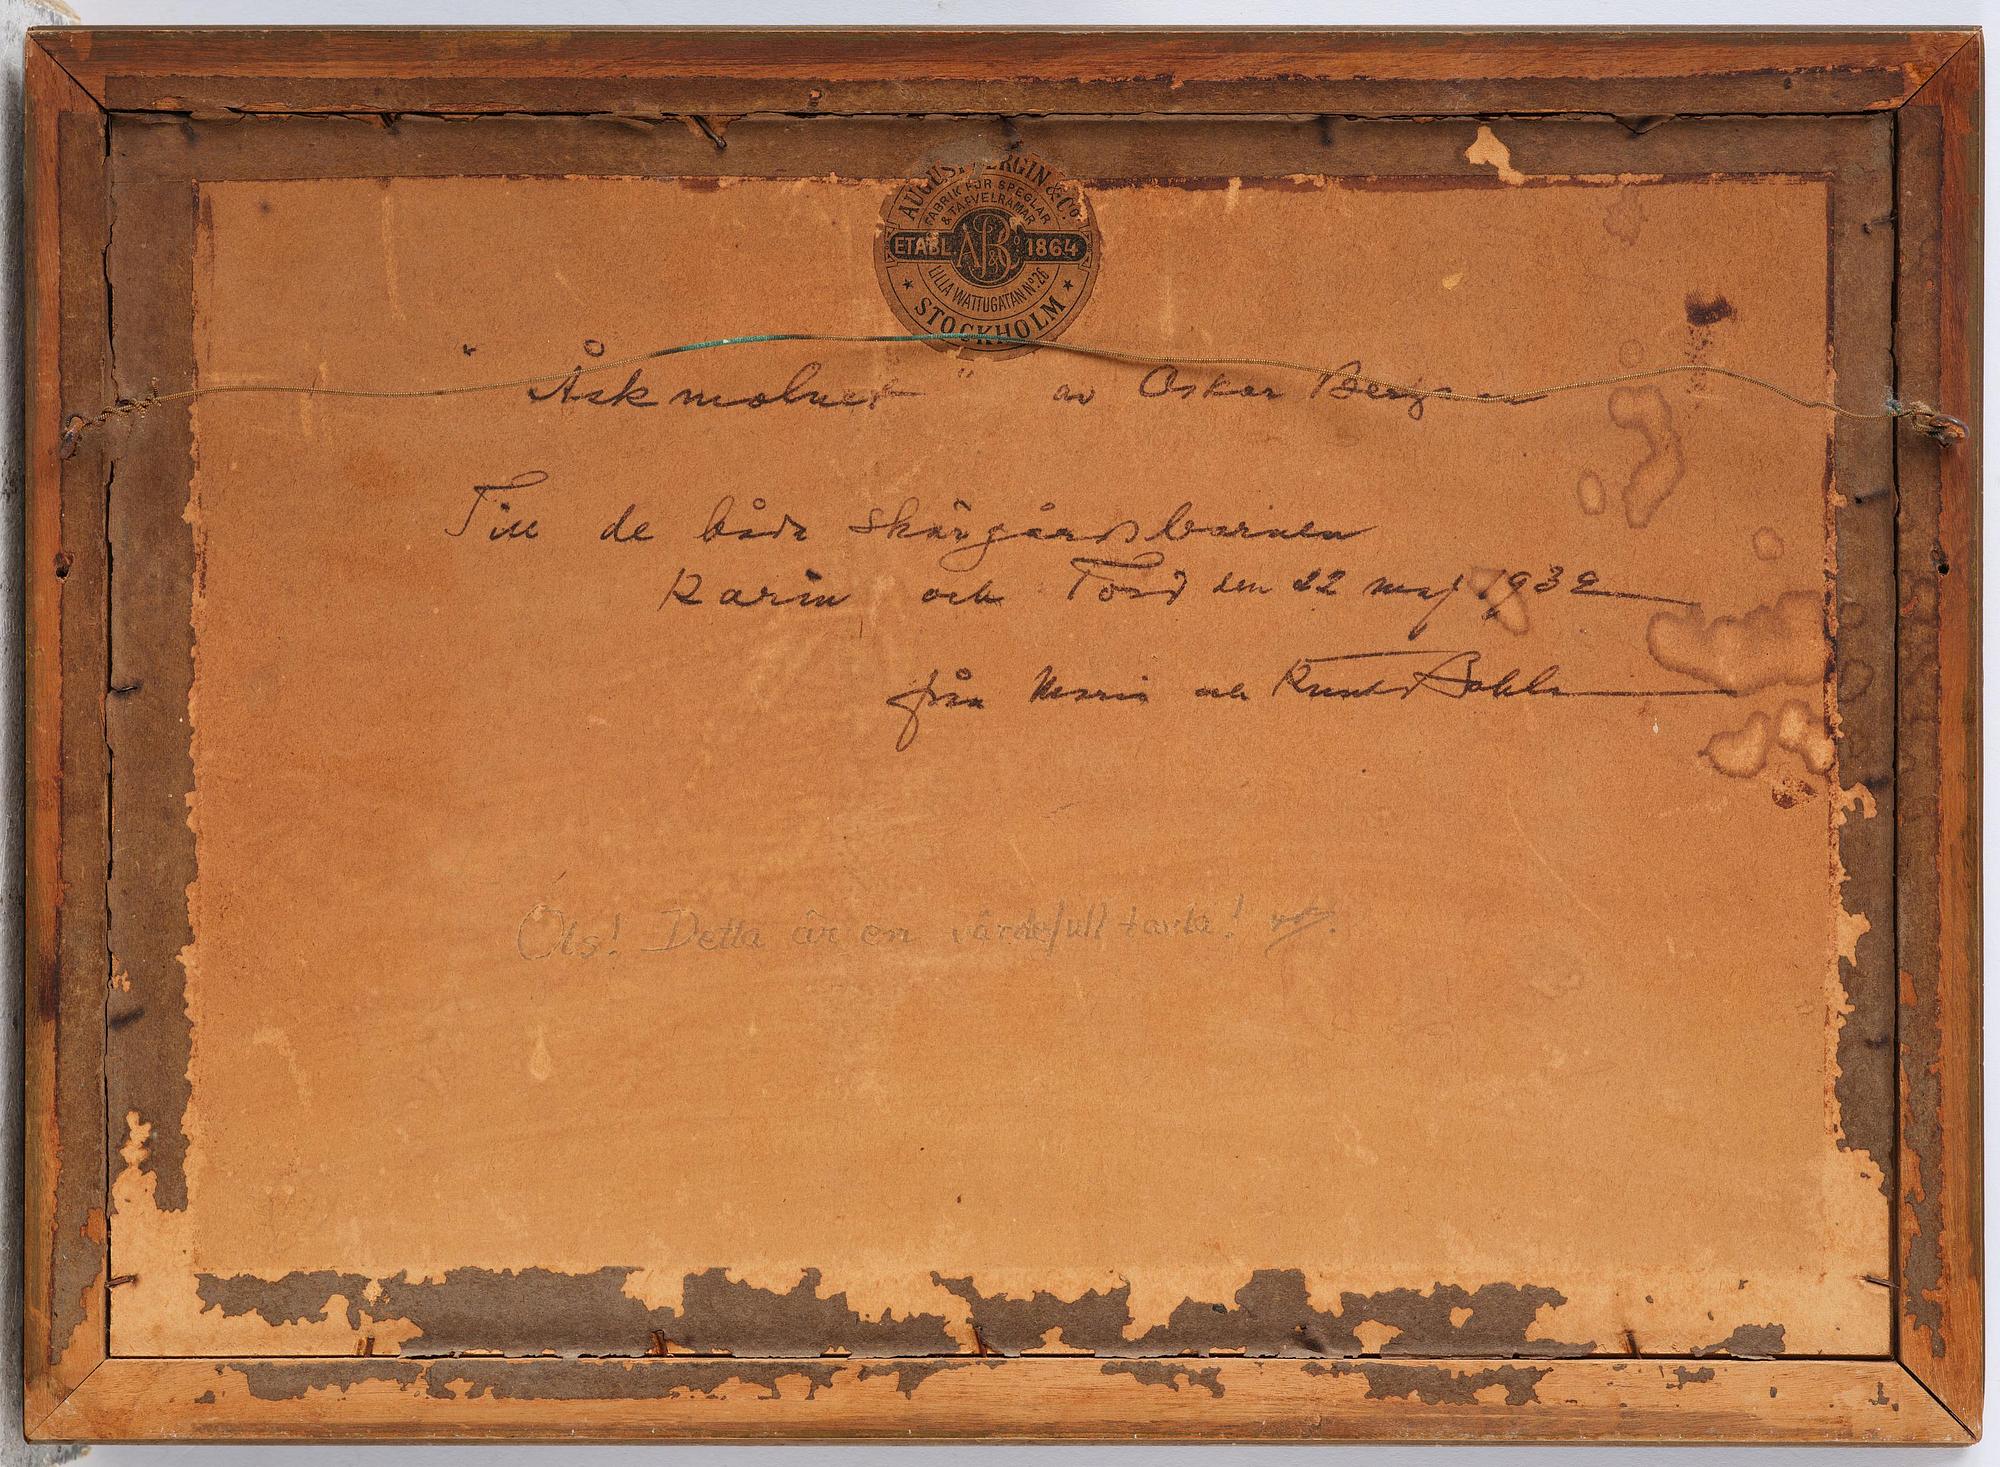 AUGUST BERGIN & Co
FABRIK FÖR SPEGLAR
& TAFVELRAMAR
ETABL. AB&Co 1864
LILLA WATTUGATAN No 26
STOCKHOLM
"Åskmolnet" av Oskar Bergman
Till de båda skärgårdsbarnen
Karin och Tord den 22 maj 1932
från Maria och Knut
Obs! Detta är en värdefull tavla!